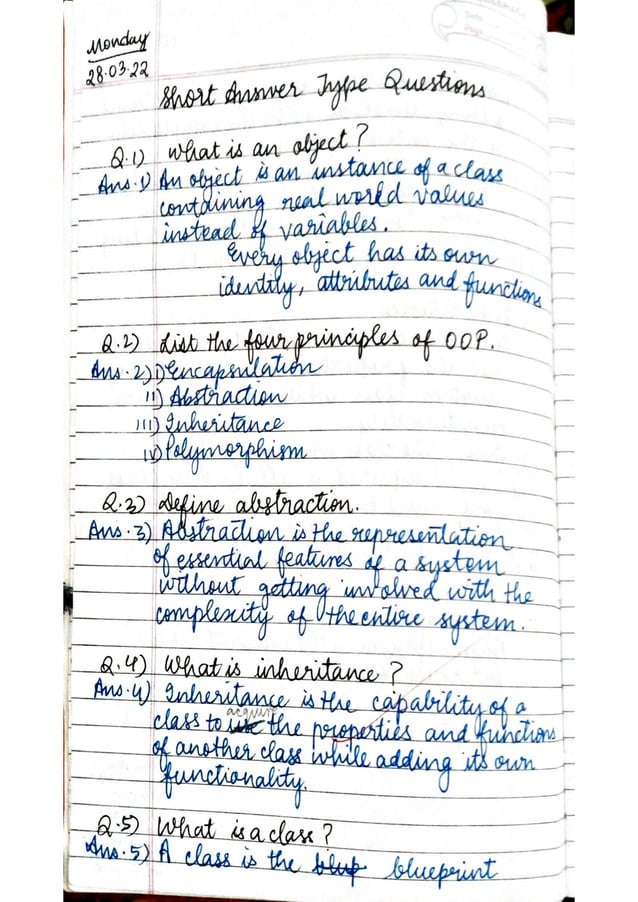 Monday
28.03.22
Short Answer Type Questions
Q.1) What is an object?
Ans.1) An object is an instance of a class
containing real world values
instead of variables.
Every object has its own
identity, attributes and functions
Q.2) List the four principles of OOP.
Ans.2) i) Encapsulation
ii) Abstraction
iii) Inheritance
iv) Polymorphism
Q.3) Define abstraction.
Ans.3) Abstraction is the representation
of essential features of a system
without getting involved with the
complexity of the entire system.
Q.4) What is inheritance?
Ans.4) Inheritance is the capability of a
acquire
class to use the properties and functions
of another class while adding its own
functionality.
Q.5) What is a class?
Ans.5) A class is the blup blueprint